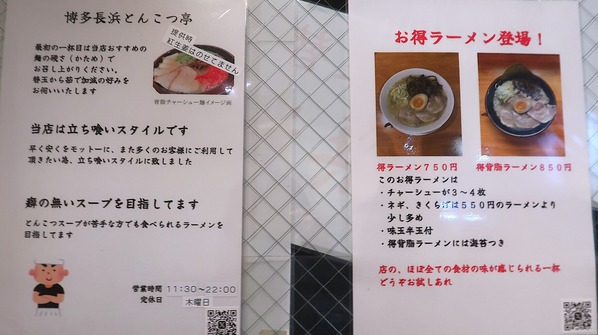 博多長浜とんこつ亭
最初の一杯目は当店おすすめの
麺の硬さ（かため）で
お召し上がりください。
替玉から茹で加減の好みを
お伺いいたします
提供時
紅生姜はのせてません
背脂チャーシュー麺イメージ画
当店は立ち喰いスタイルです
早く安くをモットーに、また多くのお客様にご利用して
頂きたい為、立ち喰いスタイルに致しました
癖の無いスープを目指してます
とんこつスープが苦手な方でも食べられるラーメンを
目指してます
営業時間 11:30～22:00
定休日 木曜日
お得ラーメン登場！
得ラーメン７５０円
得背脂ラーメン８５０円
このお得ラーメンは
・チャーシューが３～４枚
・ネギ、きくらげは５５０円のラーメンより
少し多め
・味玉半玉付
・得背脂ラーメンには海苔つき
店の、ほぼ全ての食材の味が感じられる一杯
どうぞお試しあれ